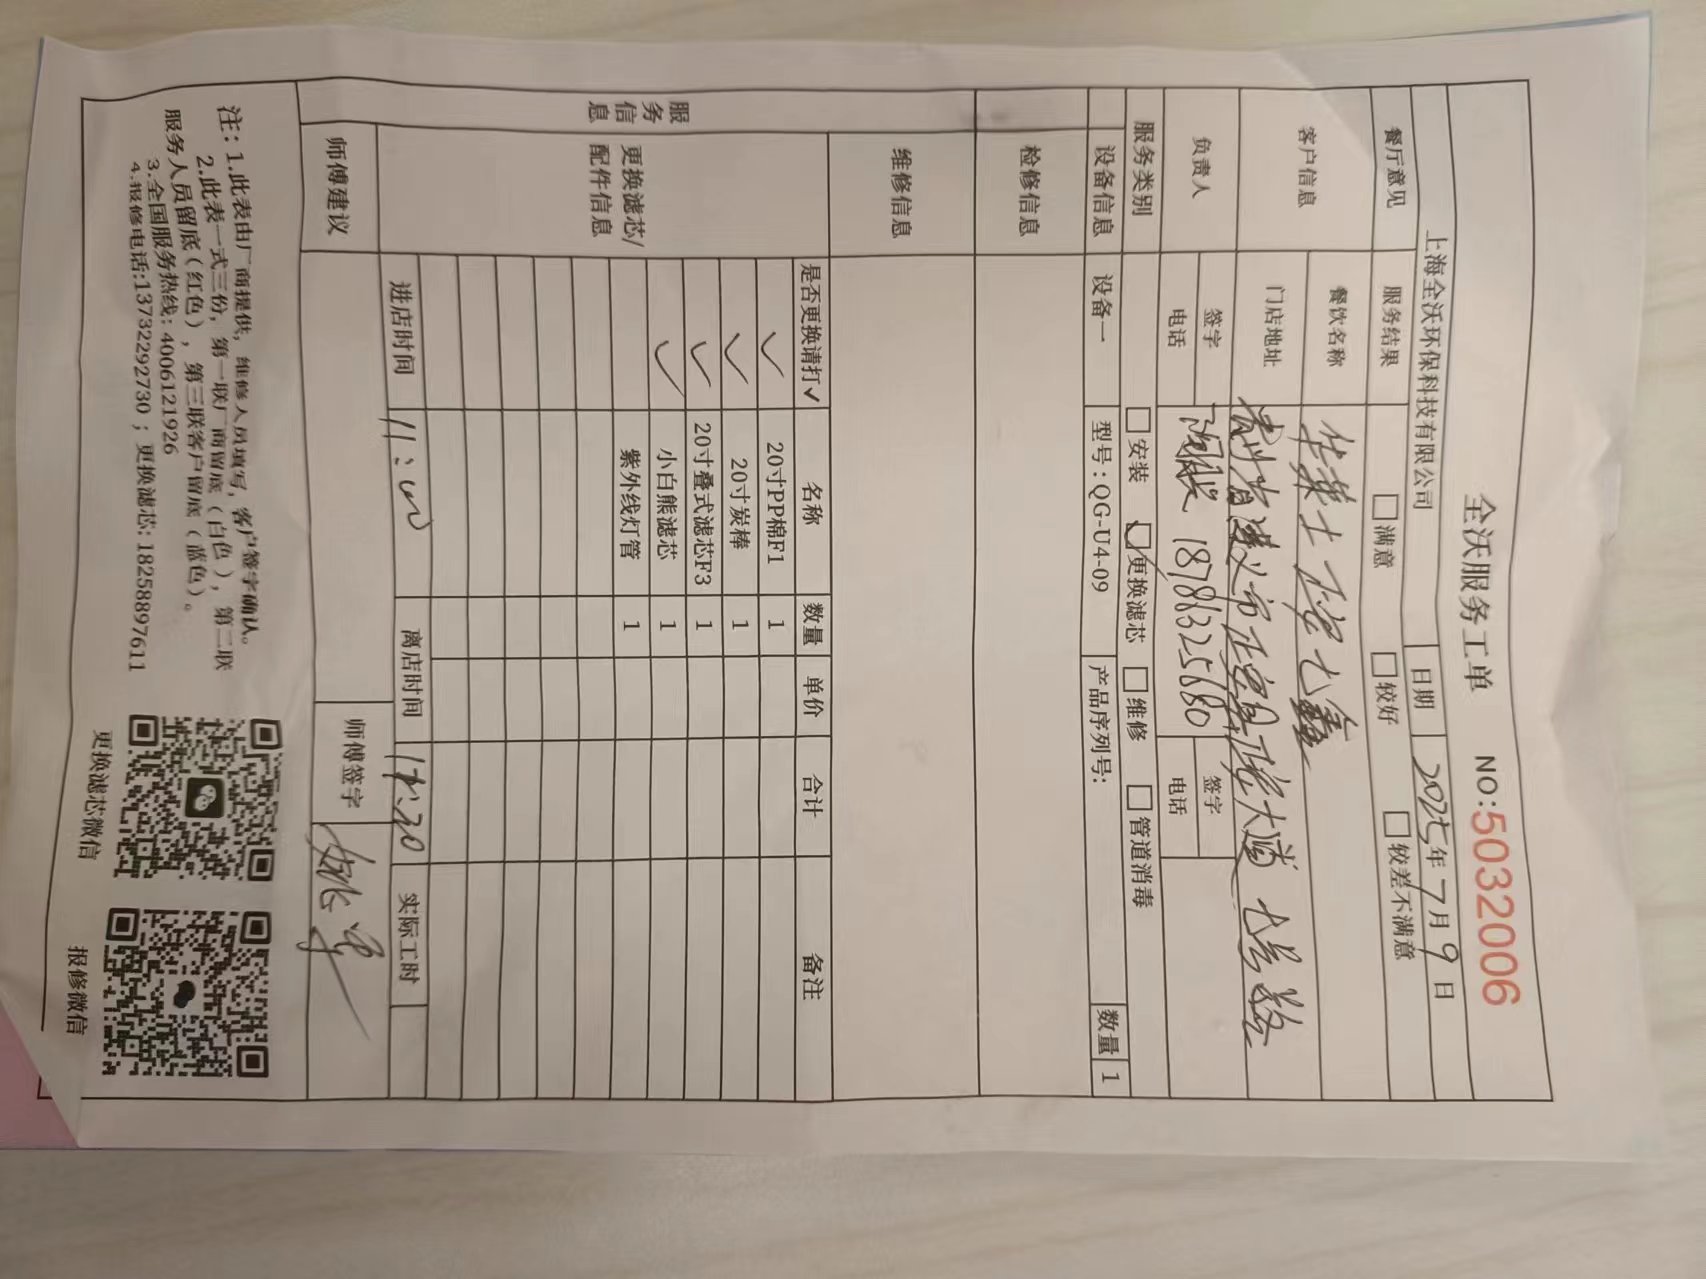 全沃服务工单 NO:5032006
上海全沃环保科技有限公司 日期 2025年7月9日
餐厅意见 服务结果 □满意 □较好 □较差不满意
客户信息 餐饮名称 华莱士
门店地址 贵州省遵义市 大道
负责人 签字 签字
电话 18786325680 电话
服务类别 □安装 ☑更换滤芯 □维修 □管道消毒
设备信息 设备一 型号:QG-U4-09 产品序列号: 数量 1
服务信息
检修信息
维修信息
更换滤芯/配件信息
是否更换请打✓ 名称 数量 单价 合计 备注
✓ 20寸PP棉F1 1
✓ 20寸炭棒 1
✓ 20寸叠式滤芯F3 1
✓ 小白熊滤芯 1
紫外线灯管 1
进店时间 11:00 离店时间 :20 实际工时
师傅建议 师傅签字
注: 1.此表由厂商提供, 维修人员填写, 客户签字确认。
2.此表一式三份, 第一联厂商留底(白色), 第二联
服务人员留底(红色), 第三联客户留底(蓝色)。
3.全国服务热线: 4006121926
4.报修电话:13732292730 ; 更换滤芯: 18258897611
更换滤芯微信 报修微信